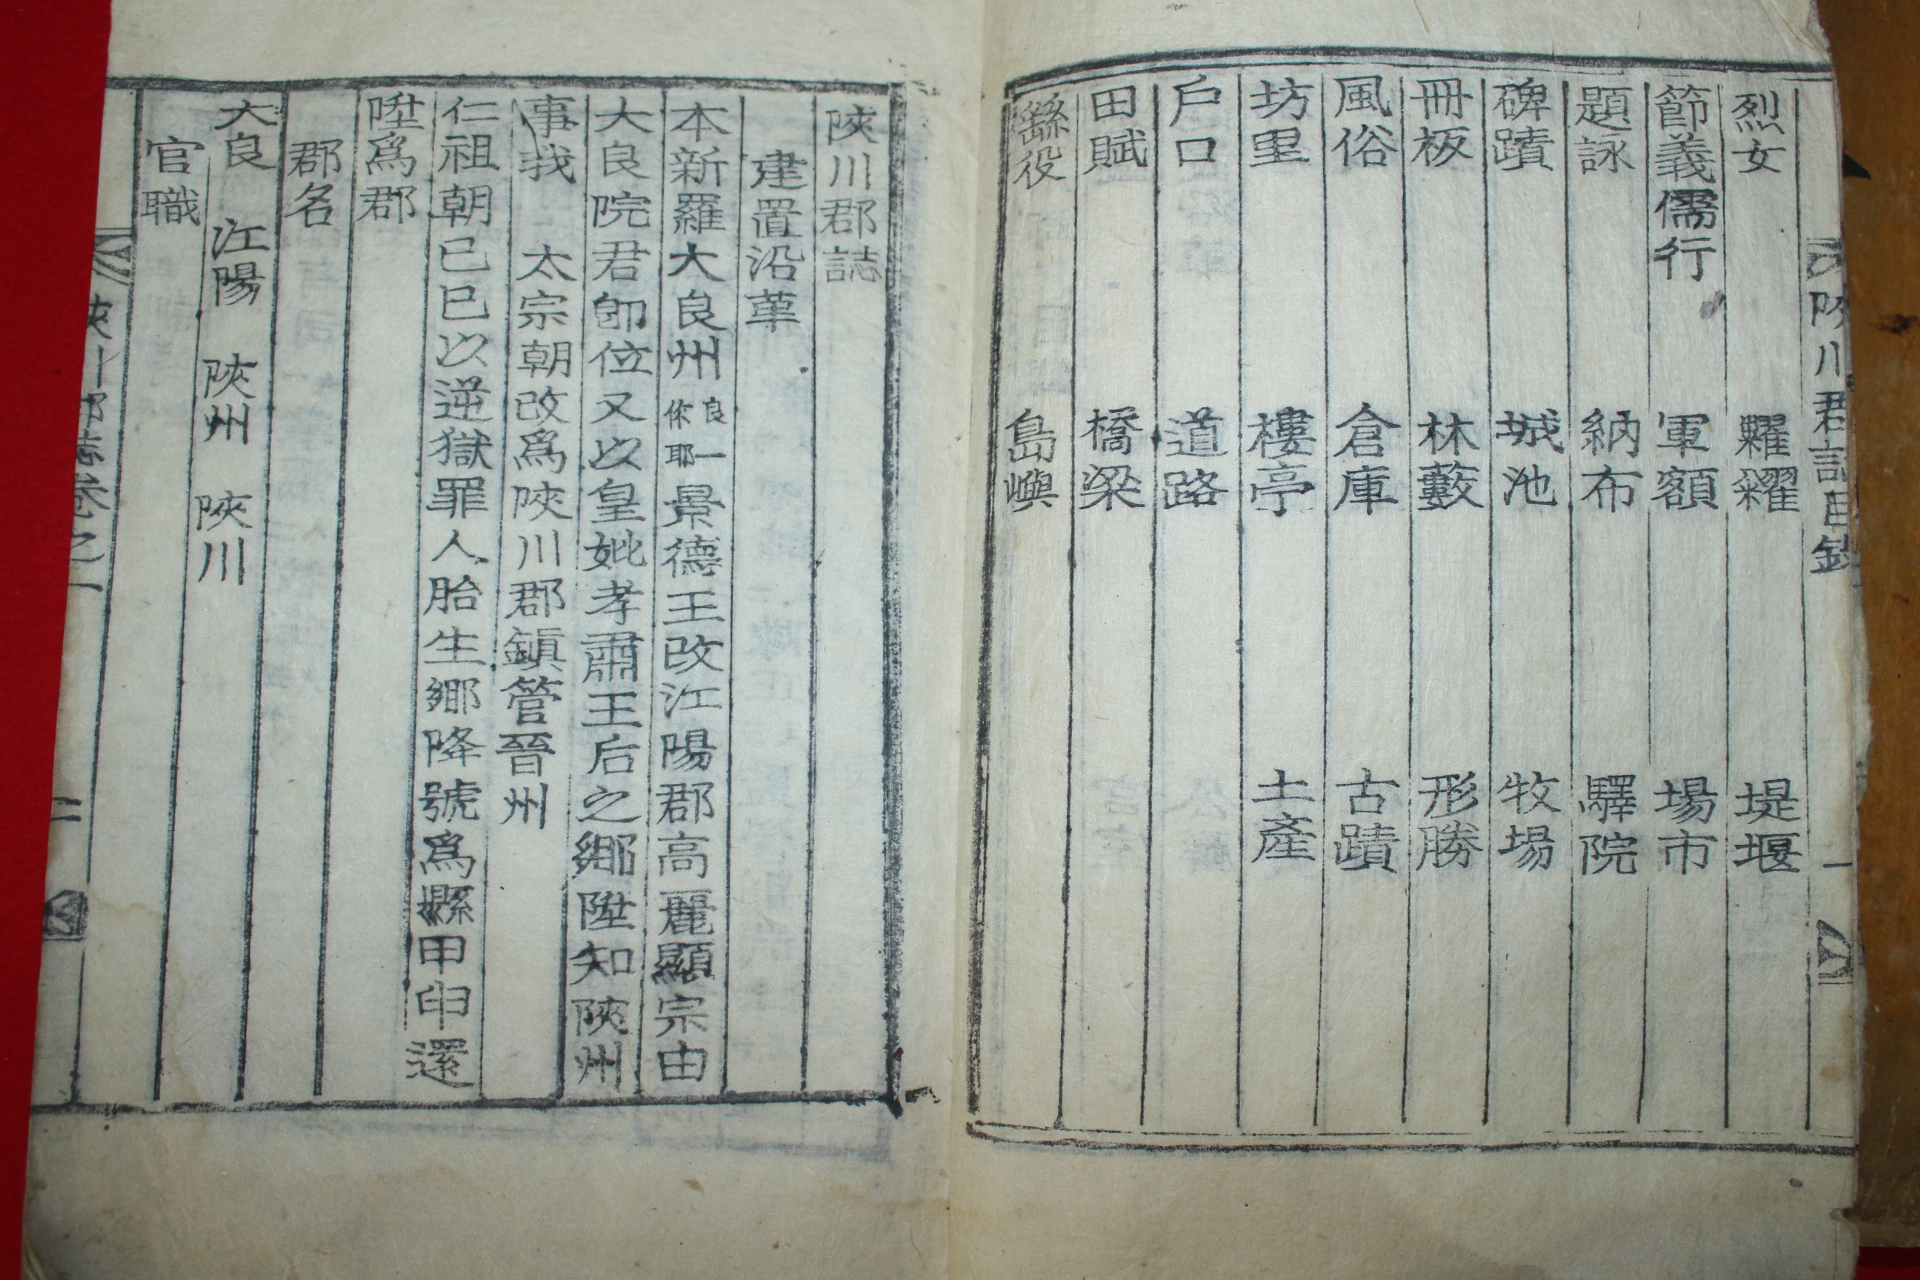 陜川君誌目錄
一
烈女 糶糴 堤堰
節義儒行 軍額 場市
題詠 納布 驛院
碑蹟 城池 牧場
冊板 林藪 形勝
風俗 倉庫 古蹟
坊里 樓亭 土產
戶口 道路
田賦 橋梁
繇役 島嶼
陜川郡誌
建置沿革
本新羅大良州良一作耶景德王改江陽郡高麗顯宗由
大良院君卽位又以皇妣孝肅王后之鄉陞知陜州
事我 太宗朝改爲陜川郡鎭管晉州
仁祖朝己巳以逆獄罪人胎生鄉降號爲縣甲申還
陞爲郡
郡名
大良 江陽 陜州 陜川
官職
陜川郡誌卷之一
二